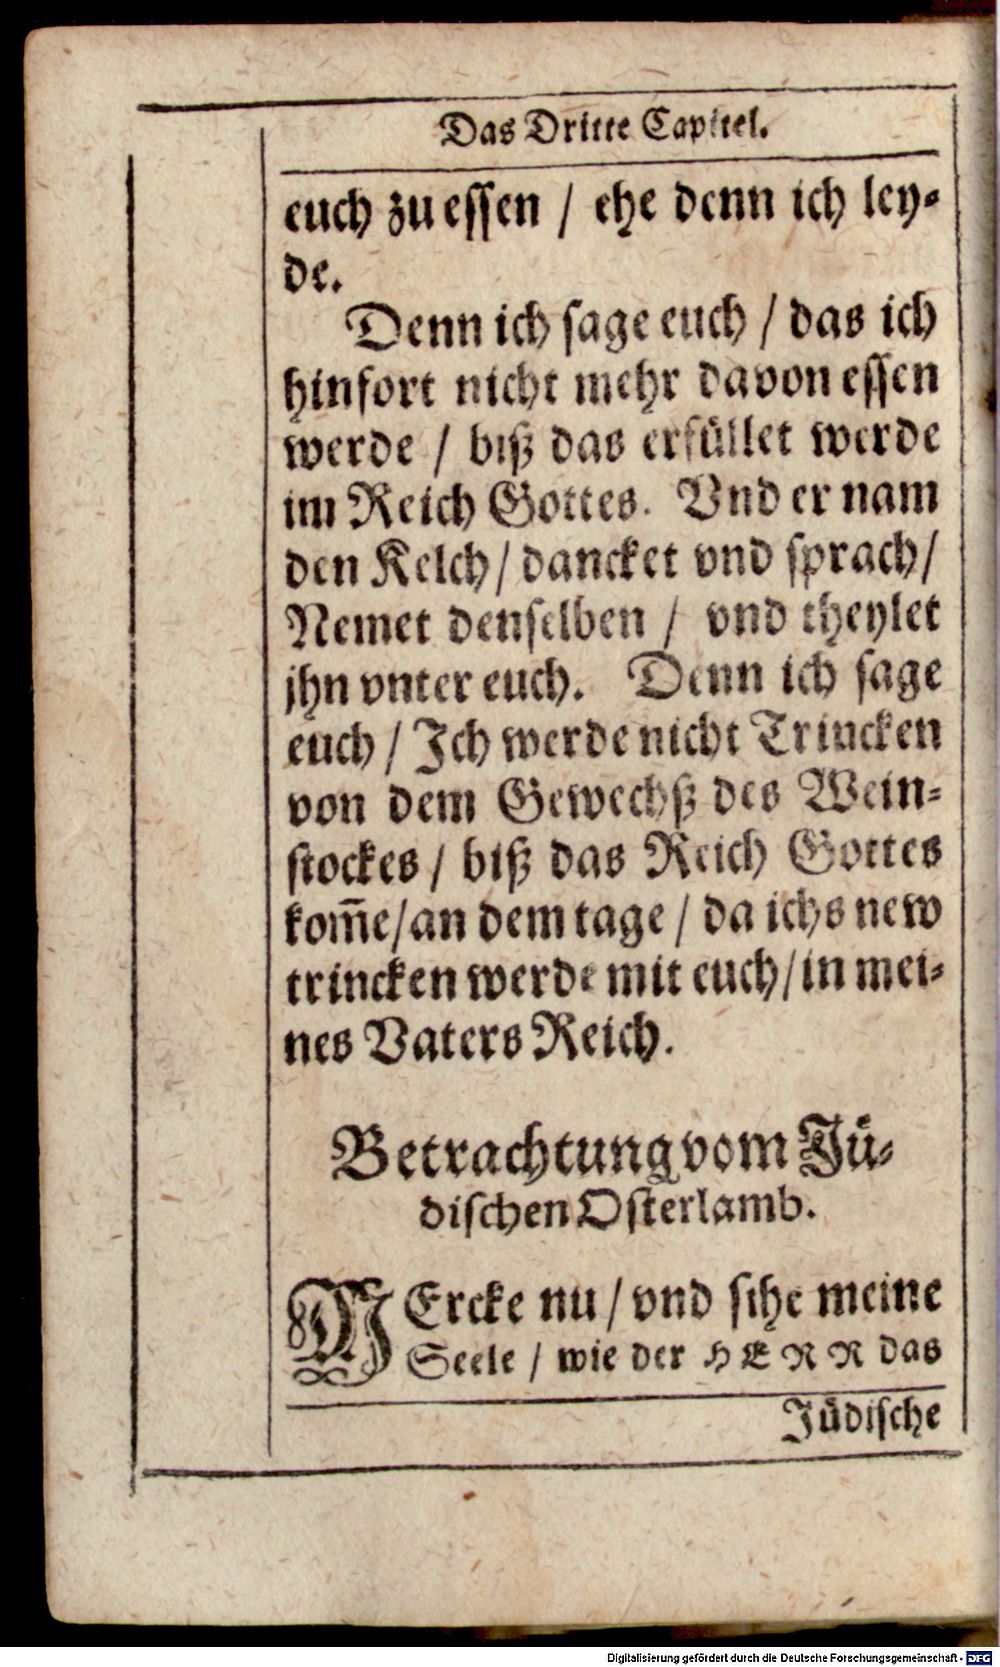 Das Dritte Capitel.
euch zu essen / ehe denn ich ley-
de.
Denn ich sage euch / das ich
hinfort nicht mehr davon essen
werde / biß das erfüllet werde
im Reich Gottes. Vnd er nam
den Kelch / dancket vnd sprach /
Nemet denselben / vnd theylet
jhn vnter euch. Denn ich sage
euch / Ich werde nicht Trincken
von dem Gewechß des Wein-
stockes / biß das Reich Gottes
kom̅e / an dem tage / da ichs new
trincken werde mit euch / in mei-
nes Vaters Reich.
Betrachtung vom Jü-
dischen Osterlamb.
MErcke nu / vnd sihe meine
Seele / wie der HERR das
Jüdische
Digitalisierung gefördert durch die Deutsche Forschungsgemeinschaft - DFG